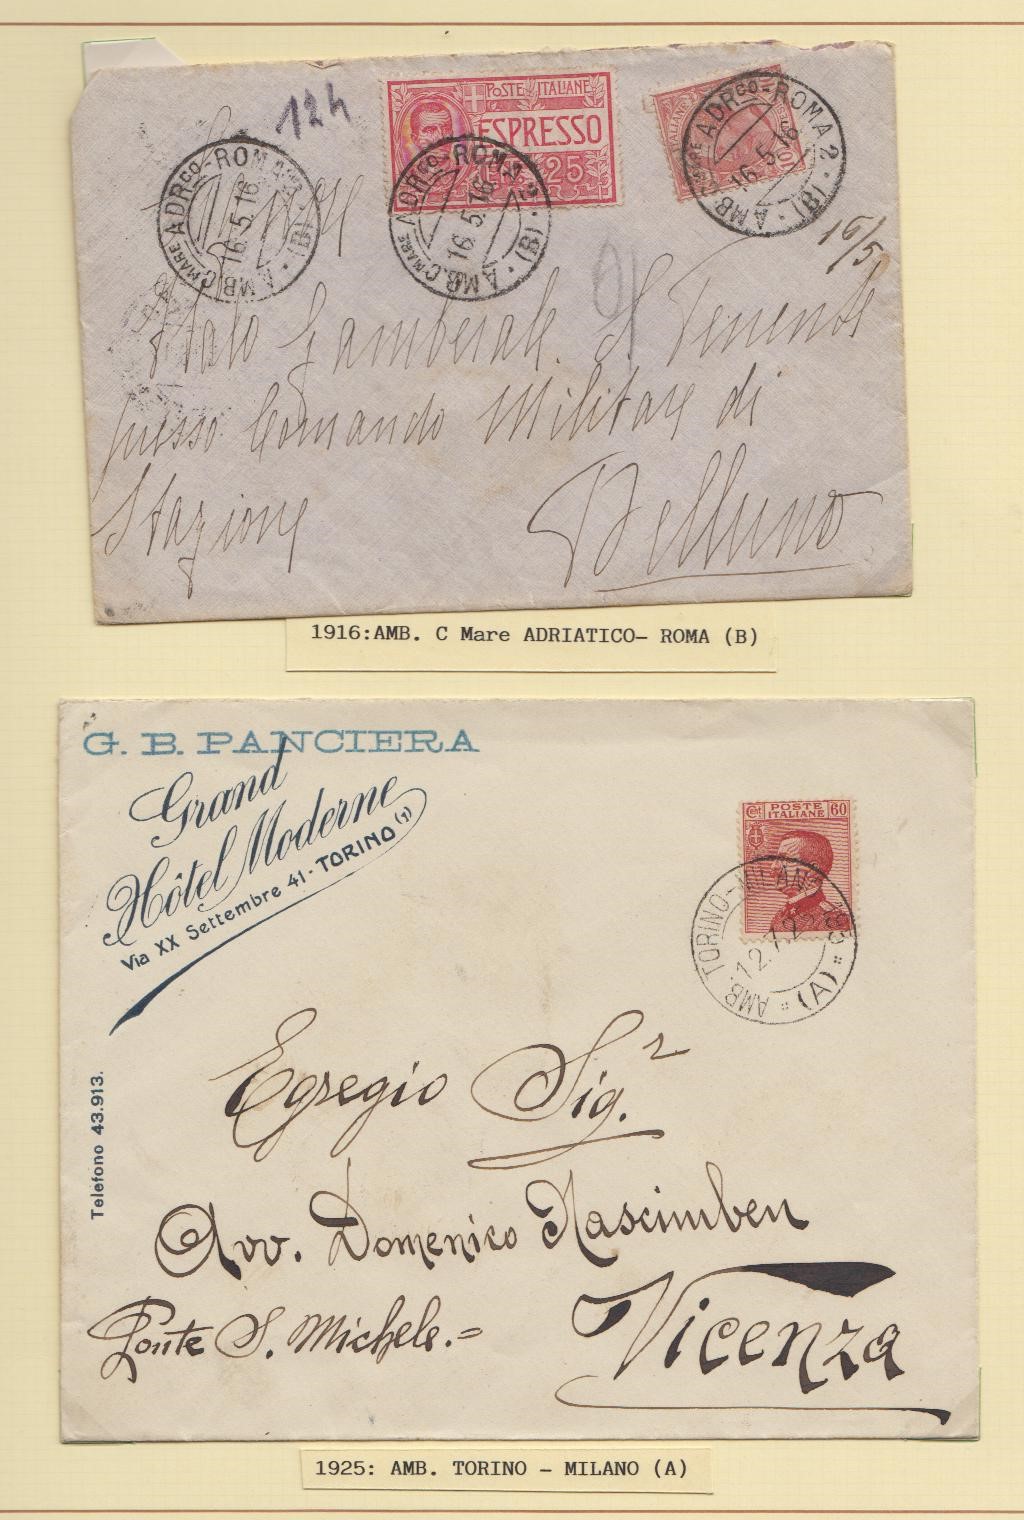 12h
POSTE ITALIANE
ESPRESSO
25
AMB. C MARE ADRco - ROMA 2 · (B) ·
16.5.16
AMB. C MARE ADRco - ROMA 2 · (B) ·
16.5.16
AMB. C MARE ADRco - ROMA 2 · (B) ·
16.5.16
16/5
Italo Gamberale. S. Tenente
presso Comando Militare di
Stazione
Belluno
1916:AMB. C Mare ADRIATICO- ROMA (B)
G. B. PANCIERA
Grand
Hôtel Moderne
Via XX Settembre 41 - TORINO (1)
Telefono 43.913.
Cent POSTE ITALIANE 60
AMB. TORINO-MILANO (A)
Egregio Sigr.
Avv. Domenico Nascimben
Ponte S. Michele.=
Vicenza
1925: AMB. TORINO - MILANO (A)